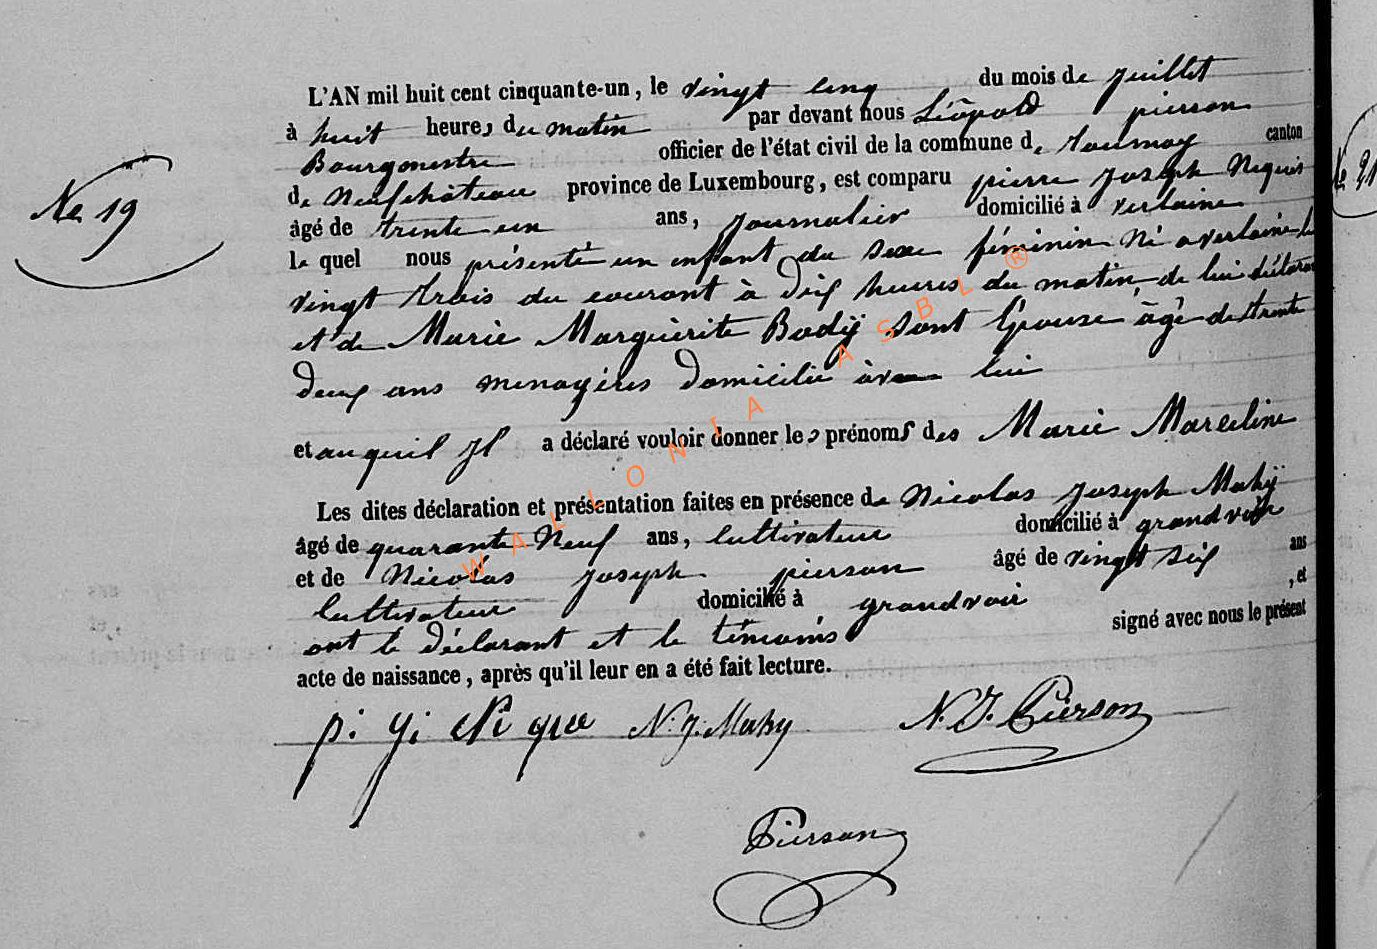 L'AN mil huit cent cinquante-un, le vingt cinq du mois de juillet
à huit heures du matin par devant nous Léopold pierson
Bourgmestre officier de l'état civil de la commune de tournay canton
de Neufchâteau province de Luxembourg, est comparu pierre Joseph
No 19
âgé de trente un ans, journalier domicilié à verlaine
le quel nous présenté un enfant du sexe féminin Né a verlaine le
vingt trois du courant à dix heures du matin, de lui déclarant
et de Marie Marguerite Bodÿ sont Epouse âgé de trente
deux ans menagéres domicilié avec lui
et auquil il a déclaré vouloir donner les prénoms des Marie Marceline
Les dites déclaration et présentation faites en présence de Nicolas Joseph Mahÿ
âgé de quarante Neuf ans, cultivateur domicilié à grandvoir
et de Nicolas Joseph pierson âgé de vingt six ans
cultivateur domicilié à grandvoir , et
ont le déclarant et le témoins signé avec nous le présent
acte de naissance, après qu'il leur en a été fait lecture.
p. j. Ni que N. J. Mahy N. J. Pierson
Pierson
WALLONIA ASBL ®